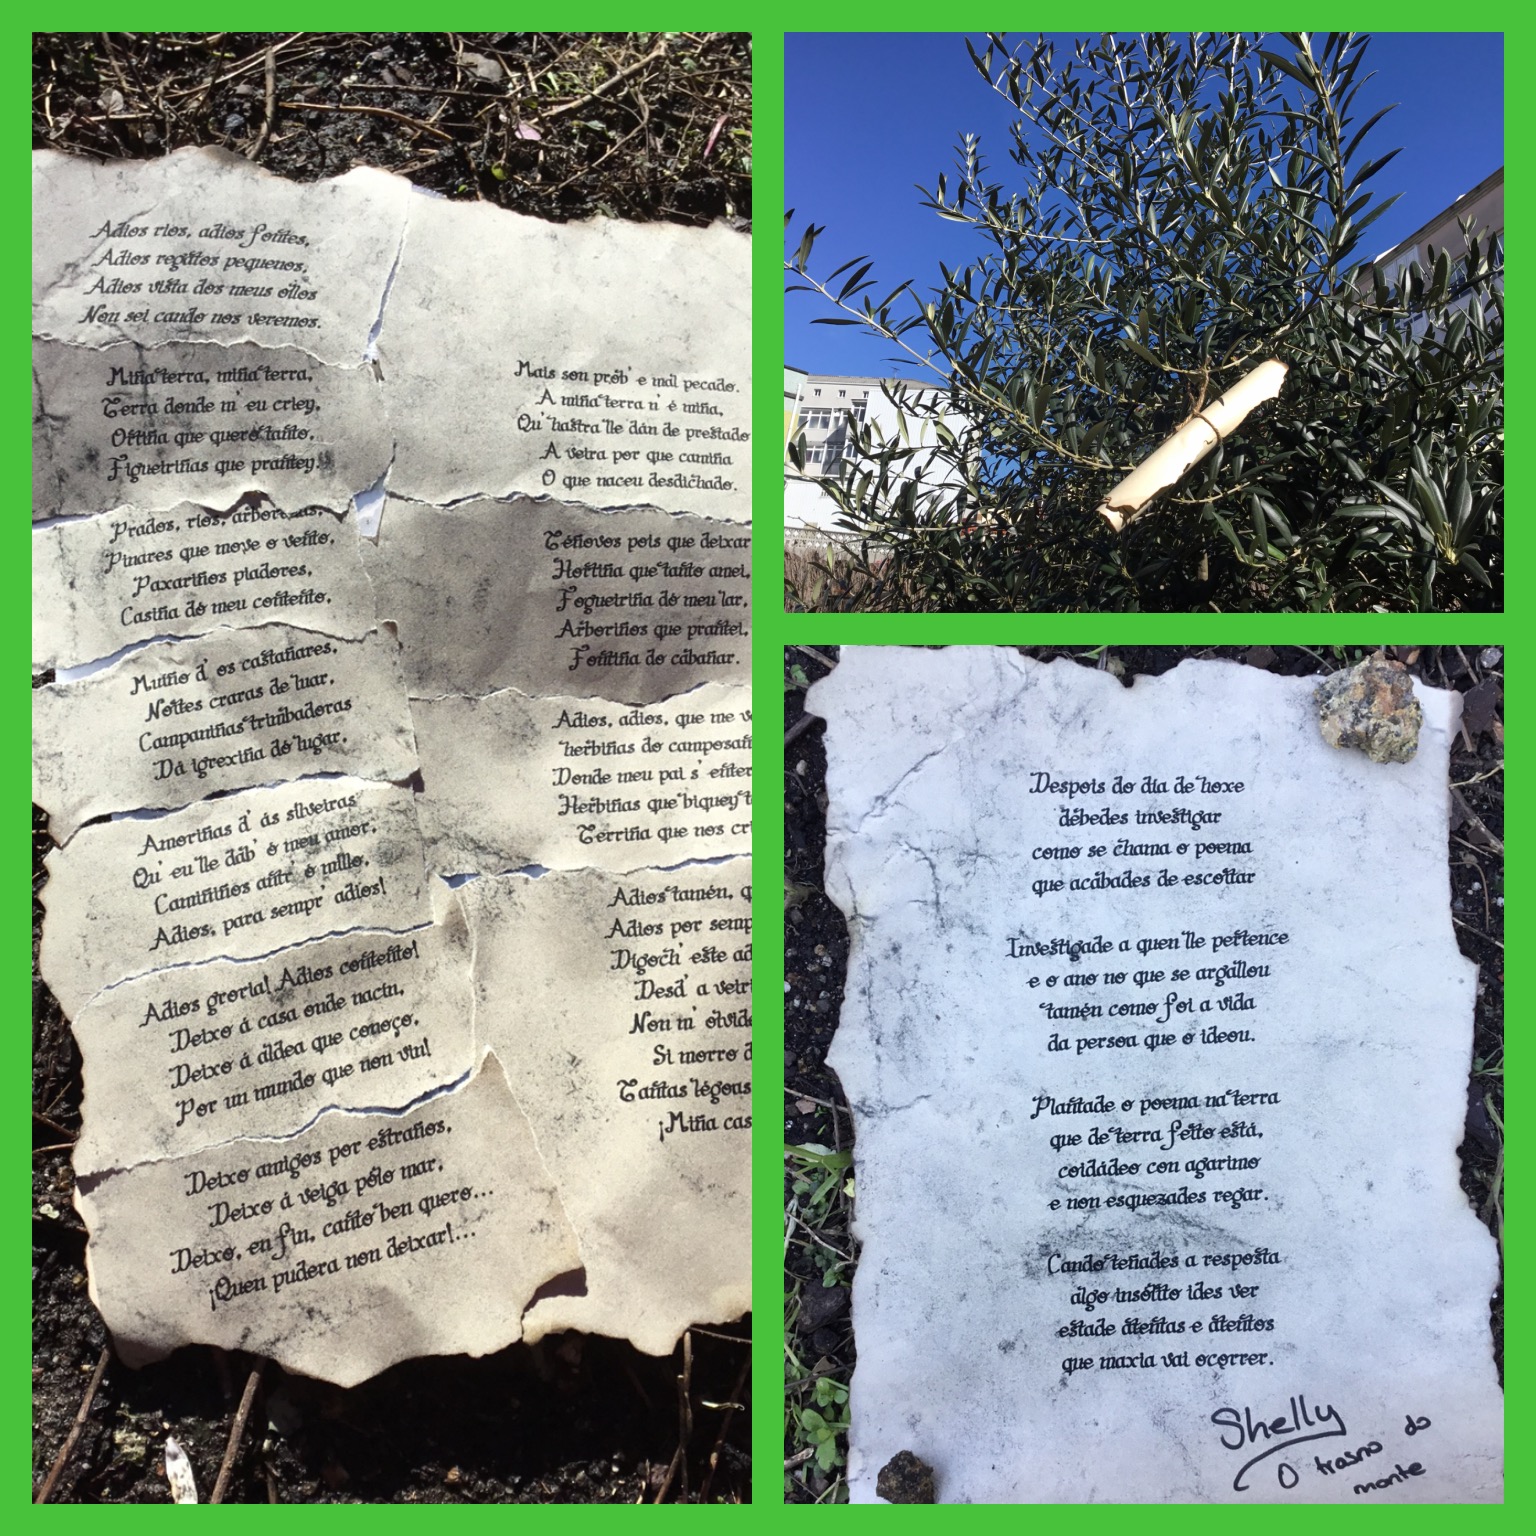 Adios rios, adios fontes,
Adios regatos pequenos,
Adios vista dos meus ollos
Non sei cando nos veremos.
Miña terra, miña terra,
Terra donde m' eu criey,
Ortiña que quero tanto,
Figueiriñas que prantey.
Prados, rios,
Pinares que move o vento,
Paxariños piadores,
Casiña dó meu contento,
Muiño d' os castañares,
Noites craras de luar,
Campaniñas trimbadoras
Dá igrexiña dó lugar,
Amoriñas d' ás silveiras
Qu' eu lle dab' ó meu amor,
Camiñiños antr' ó millo,
Adios, para sempr' adios!
Adios groria! Adios contento!
Deixo á casa onde nacin,
Deixo á aldea que conoço,
Por un mundo que non vin!
Deixo amigos por estraños,
Deixo á veiga pólo mar,
Deixo, en fin, canto ben quero...
¡Quen pudera non deixar!...
Mais son prob' e mal pecado.
A miña terra n' é miña,
Qu' hastra lle dán de prestado
A veira por que camiña
O que naceu desdichado.
Téñovos pois que deixar
Hortiña que tanto amei,
Fogueiriña dó meu lar,
Arboriños que prantei,
Fontiña do cabañar.
Adios, adios, que me
herbiñas do
Donde meu pai s'
Herbiñas que biquey
Terriña que nos
Adios tamén,
Adios por
Digoch' este
Desd' a
Non m'
Si morro
Tantas légoas
¡Miña
Despois do día de hoxe
debedes investigar
como se chama o poema
que acabades de escoitar
Investigade a quen lle pertence
e o ano no que se argallou
tamén como foi a vida
da persoa que o ideou.
Plantade o poema na terra
que de terra feito está,
coidádeo con agarimo
e non esquezades regar.
Cando teñades a resposta
algo insólito ides ver
estade atentas e atentos
que maxia vai ocorrer.
Shelly
O trasno do
monte